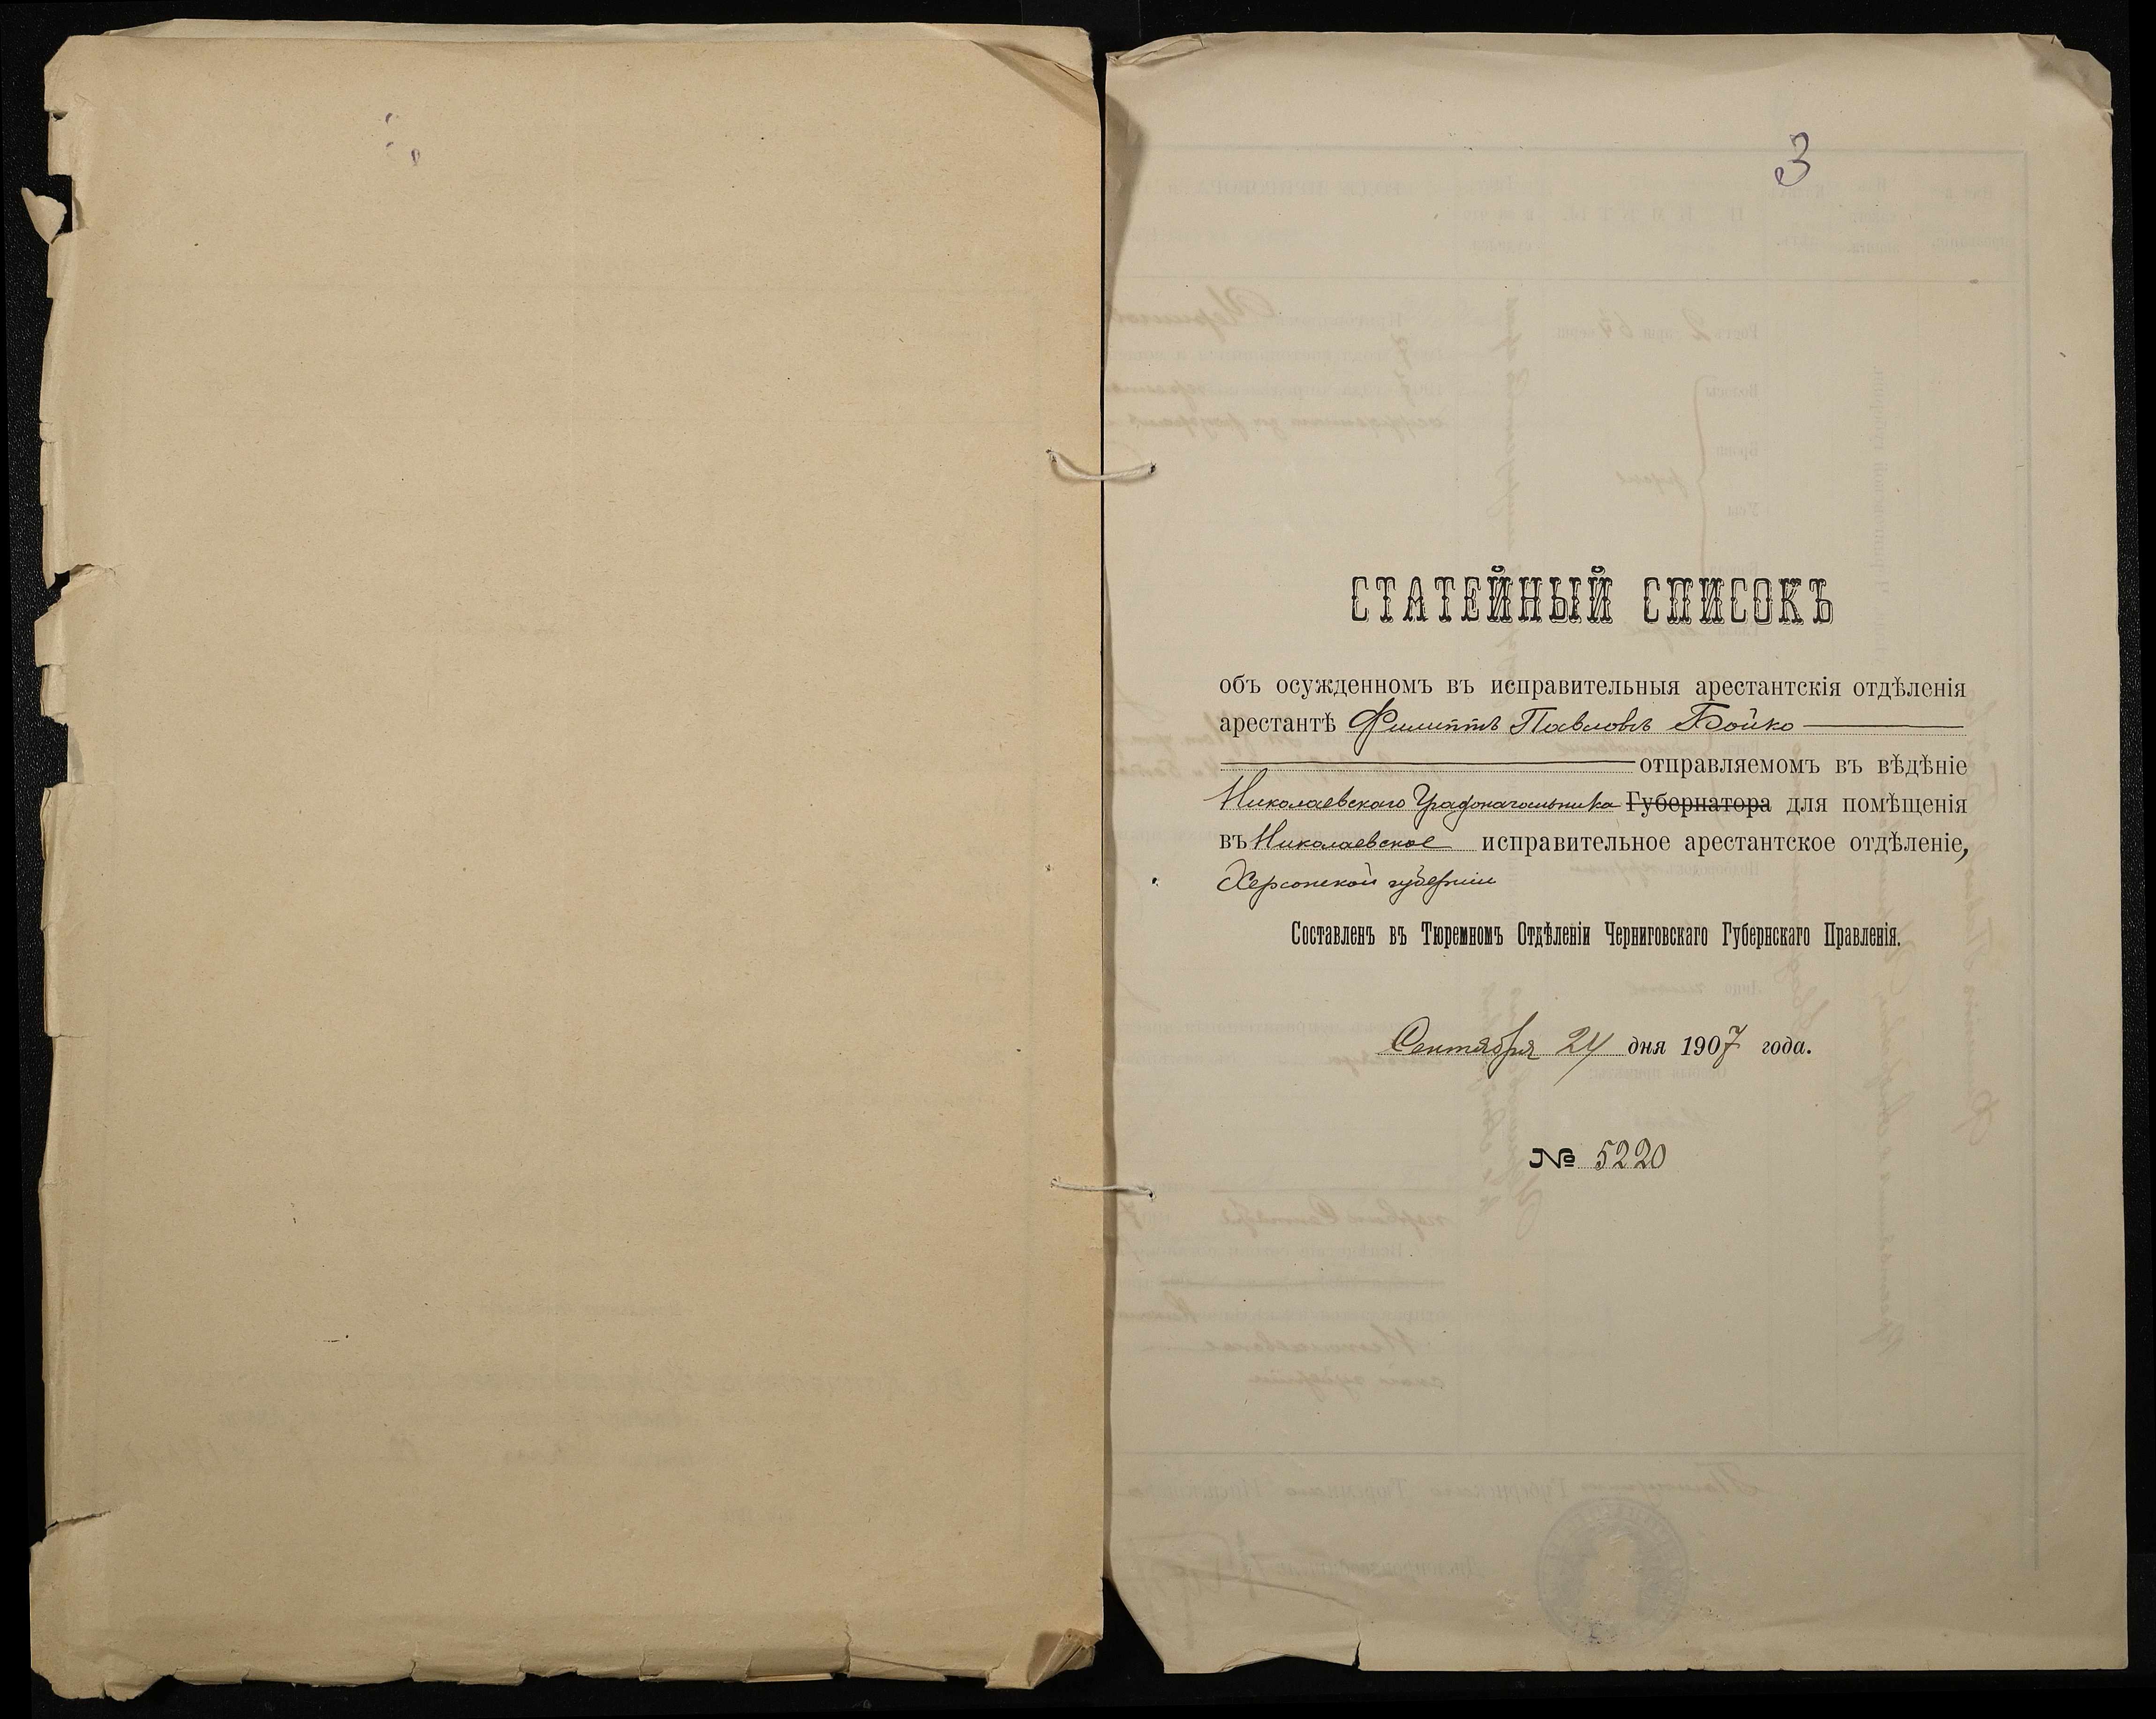 3
СТАТЕЙНЫЙ СПИСОКЪ
объ осужденномъ въ исправительныя арестантскія отдѣленія
арестантѣ Филиппъ Павловъ Бойко
отправляемомъ въ вѣдѣніе
Николаевскаго Градоначальника Губернатора для помѣщенія
въ Николаевское исправительное арестантское отдѣленіе,
Херсонской губерніи
Составленъ въ Тюремномъ Отдѣленіи Черниговскаго Губернскаго Правленія.
Сентября 24 дня 1907 года.
№ 5220